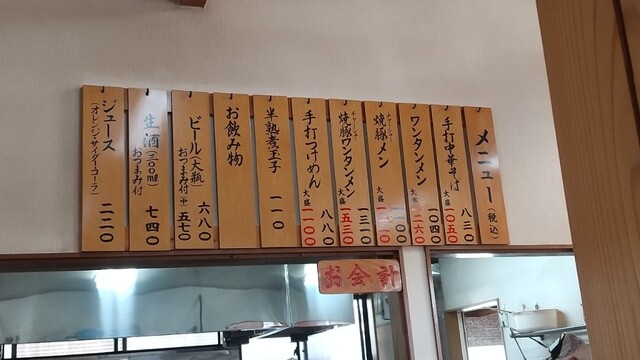 メニュー(税込)
手打中華そば 八三〇
大盛 一〇五〇
ワンタンメン 一〇四〇
大盛 一二六〇
焼豚メン
チャーシュー
大盛
焼豚ワンタンメン 一三一〇
チャーシュー
大盛 一五三〇
手打つけめん 八八〇
大盛 一一〇〇
半熟煮玉子 一一〇
お飲み物
ビール(大瓶) 六八〇
おつまみ付(中) 五七〇
生酒(三〇〇ml) 七四〇
おつまみ付
ジュース 二二〇
(オレンジ・サイダー・コーラ)
お会計